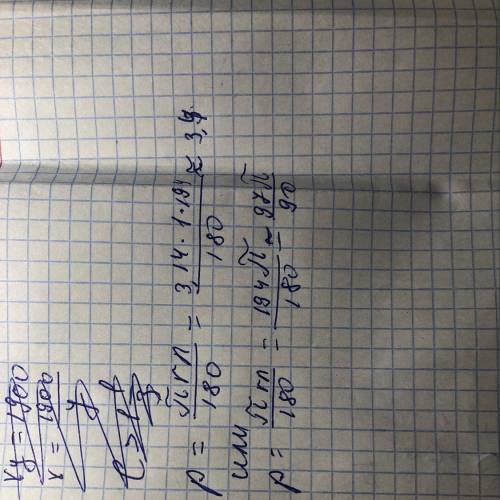 xy = 1900
x = 1900 / y
p = πrn / 180 = 3,14 · 1 · 194 / 180 ≈ 3,4
или
p = πrn / 180 = 194π / 180 = 97π / 90